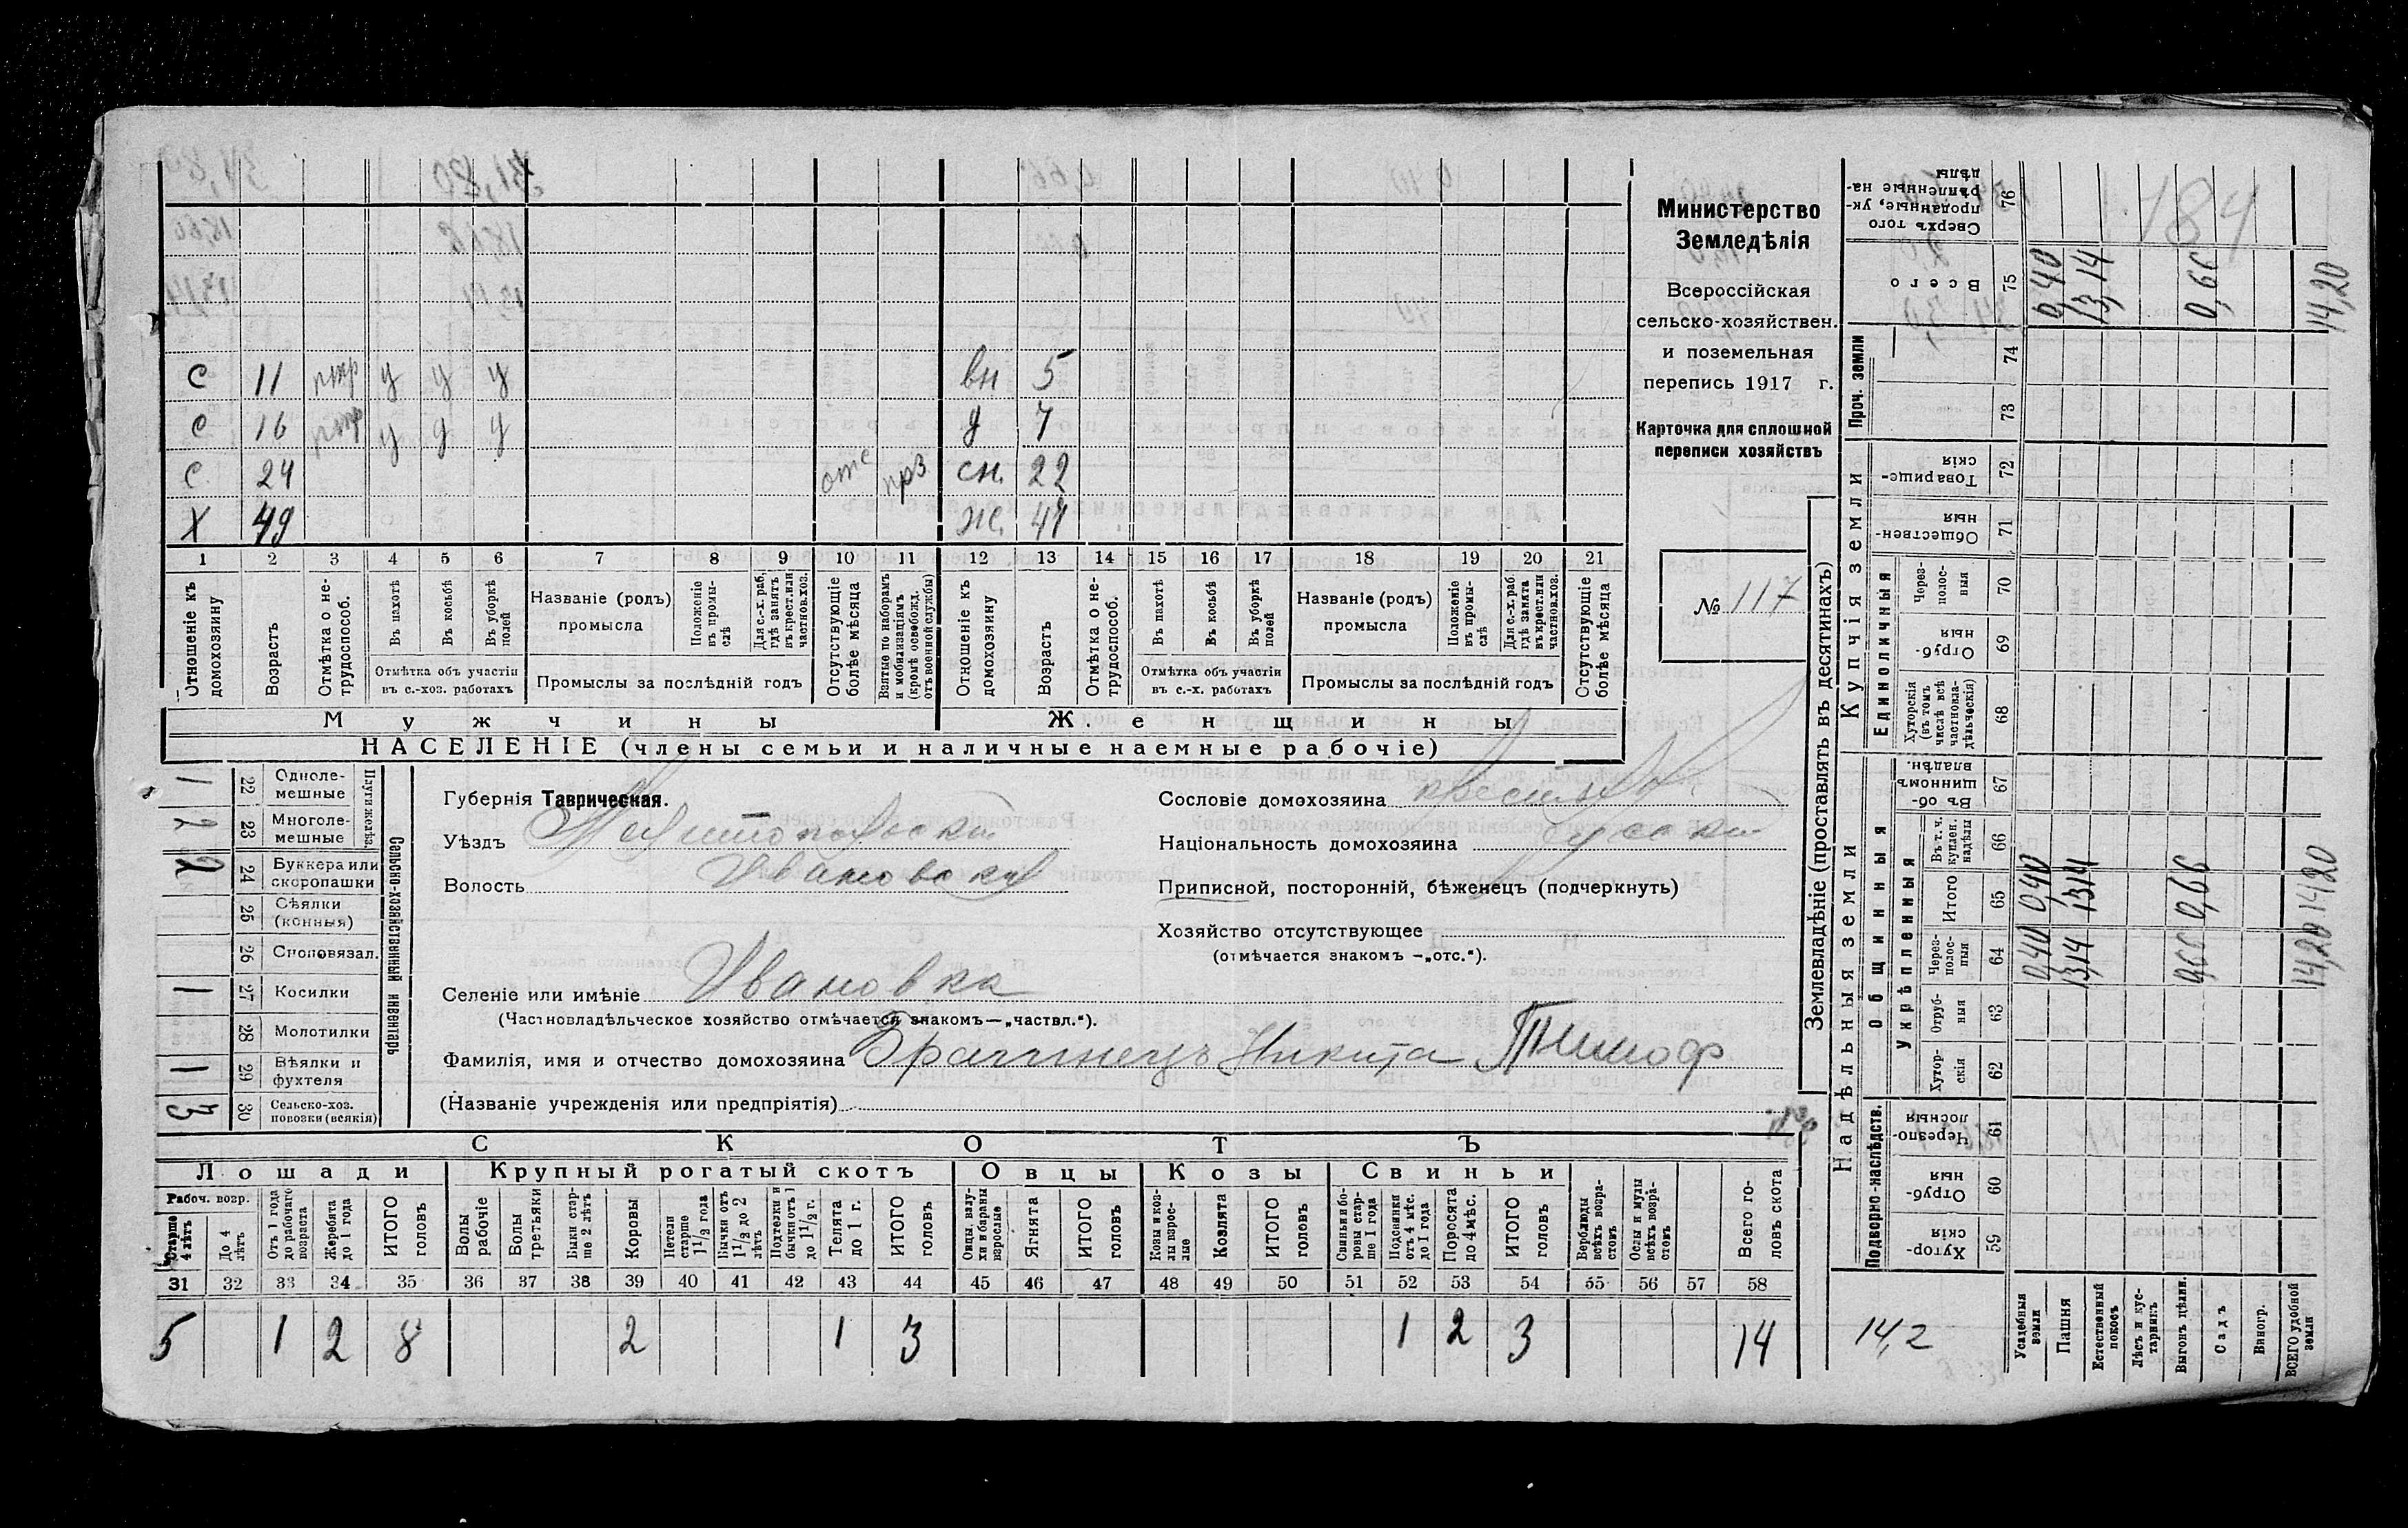 С 11 у у у вн 5
С 16 у у у д 7
С 24 отс прз сн. 22
Х 49 ж. 47
1 2 3 4 5 6 7 8 9 10 11 12 13 14 15 16 17 18 19 20 21
Отношеніе къ домохозяину
Возрастъ
Отмѣтка о не-трудоспособ.
Въ пахотѣ
Въ косьбѣ
Въ уборкѣ полей
Отмѣтка объ участіи въ с.-хоз. работахъ
Названіе (родъ) промысла
Положеніе въ промы-слѣ
Для с.-х. раб. гдѣ занятъ въ крест. или частнов. хоз.
Промыслы за послѣдній годъ
Отсутствующіе болѣе мѣсяца
Взятые по наборамъ и мобилизаціямъ (кромѣ освобожд. отъ военной службы)
Отношеніе къ домохозяину
Возрастъ
Отмѣтка о не-трудоспособ.
Въ пахотѣ
Въ косьбѣ
Въ уборкѣ полей
Отмѣтка объ участіи въ с.-х. работахъ
Названіе (родъ) промысла
Положеніе въ промы-слѣ
Для с.-х. раб. гдѣ занята въ крест. или частнов. хоз.
Промыслы за послѣдній годъ
Отсутствующіе болѣе мѣсяца
Мужчины
Женщины
НАСЕЛЕНІЕ (члены семьи и наличные наемные рабочіе)
Министерство
Земледѣлія
Всероссійская
сельско-хозяйствен.
и поземельная
перепись 1917 г.
Карточка для сплошной
переписи хозяйствъ
№ 117
Сельско-хозяйственный инвентарь
Плуги желѣз.
1 22 Одноле-мешные
2 23 Многоле-мешные
2 24 Буккера или скоропашки
25 Сѣялки (конныя)
26 Сноповязал.
1 27 Косилки
28 Молотилки
1 29 Вѣялки и фухтеля
3 30 Сельско-хоз. повозки (всякія)
Губернія Таврическая.
Уѣздъ Мелитопольски
Волость Ивановска
Селеніе или имѣніе Ивановка
(Частновладѣльческое хозяйство отмѣчается знакомъ—„частвл.“).
Фамилія, имя и отчество домохозяина Никита Тимоф
(Названіе учрежденія или предпріятія)
Сословіе домохозяина
Національность домохозяина Русски
Приписной, посторонній, бѣженецъ (подчеркнуть)
Хозяйство отсутствующее
(отмѣчается знакомъ —„отс.“).
СКОТЪ
Лошади
Крупный рогатый скотъ
Овцы
Козы
Свиньи
Рабоч. возр.
Старше 4 лѣтъ
До 4 лѣтъ
Отъ 1 года до рабочаго возраста
Жеребята до 1 года
ИТОГО головъ
Волы рабочіе
Волы третьяки
Быки стар-ше 2 лѣтъ
Коровы
Нетели старше 1 1/2 года
Бычки отъ 1 1/2 до 2 лѣтъ
Подтелки и бычки отъ 1 до 1 1/2 г.
Телята до 1 г.
ИТОГО головъ
Овцы, валу-хи и бараны взрослые
Ягнята
ИТОГО головъ
Козы и коз-лы взрос-лые
Козлята
ИТОГО головъ
Свиньи и бо-ровы стар-ше 1 года
Подсвинки отъ 4 мѣс. до 1 года
Поросята до 4 мѣс.
ИТОГО головъ
Верблюды всѣхъ возра-стовъ
Ослы и мулы всѣхъ возра-стовъ
Всего го-ловъ скота
31 32 33 34 35 36 37 38 39 40 41 42 43 44 45 46 47 48 49 50 51 52 53 54 55 56 57 58
5 1 2 8 2 1 3 1 2 3 14
Землевладѣніе (проставлять въ десятинахъ)
184
Сверхъ того проданные, ук-рѣпленные на-дѣлы 76
Всего 75 0,40 13,14 0,66 14,20
Проч. земли
74
73
Купчія земли
Товарище-скія 72
Обществен-ныя 71
Единоличныя
Через-полос-ныя 70
Отруб-ныя 69
Хуторскія (въ томъ числѣ всѣ частновла-дѣльческія) 68
Надѣльныя земли
Общинныя
Въ об-щинномъ владѣн. 67
Укрѣпленныя
Въ т. ч. куплен. надѣлы 66
Итого 65 0,40 13,14 0,66 14,20
Через-полос-ныя 64 0,40 13,14 0,66 14,20
Отруб-ныя 63
Хутор-скія 62
Подворно-наслѣдств.
Черезпо-лосныя 61
Отруб-ныя 60
Хутор-скія 59
14,2
Усадебныя земли
Пашня
Естественный покосъ
Лѣсъ и кус-тарникъ
Выгонъ цѣлин.
Садъ
Виногр.
ВСЕГО удобной земли